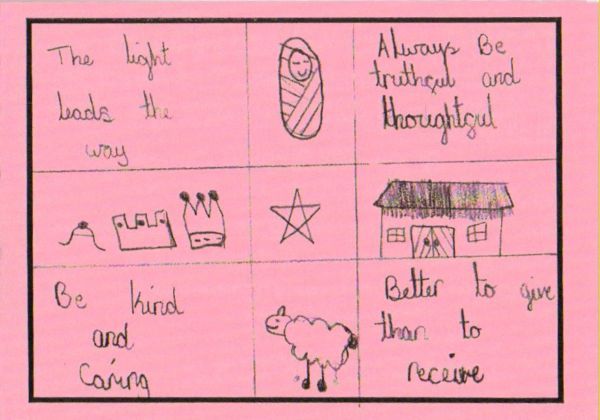 The light
leads the
way
Always Be
truthful and
thoughtful
Be kind
and
Caring
Better to give
than to
receive